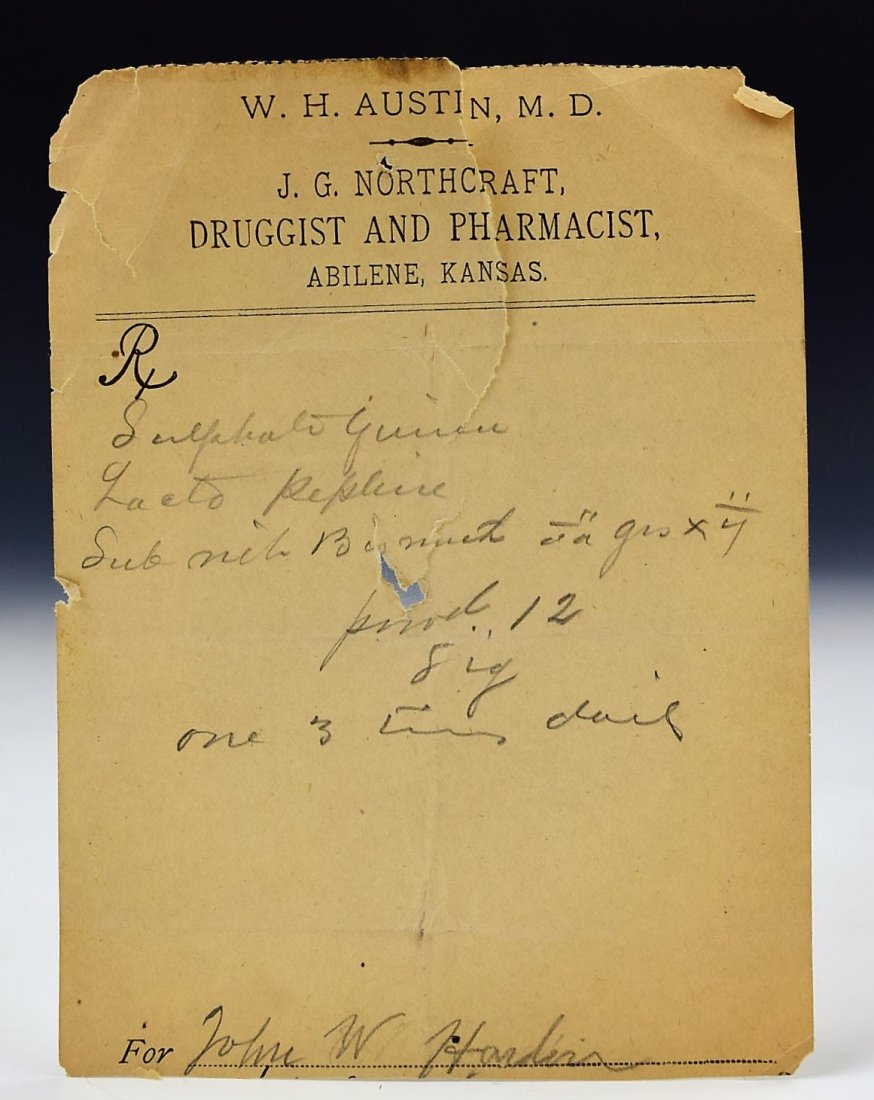 W. H. AUSTIN, M. D.
J. G. NORTHCRAFT,
DRUGGIST AND PHARMACIST,
ABILENE, KANSAS.
Rx
Sulphate Quinin
Lacto Pepsine
Sub nit Bismuth aa grs
12
Sig
one 3 times daily
For John W Hardin